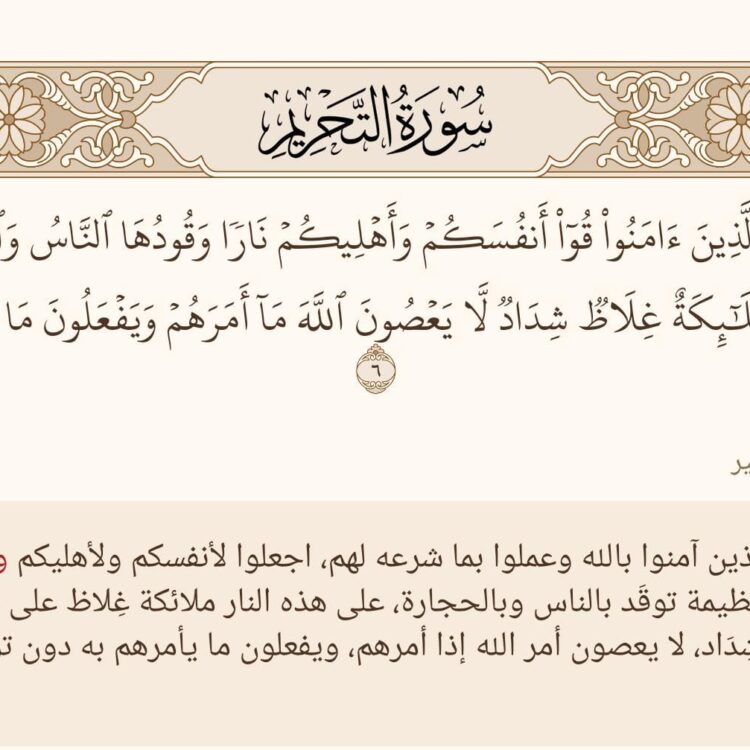 سُورَةُ التَّحْرِيمِ
ءَامَنُوا۟ قُوٓا۟ أَنفُسَكُمْ وَأَهْلِيكُمْ نَارًا وَقُودُهَا ٱلنَّاسُ
غِلَاظٌ شِدَادٌ لَّا يَعْصُونَ ٱللَّهَ مَآ أَمَرَهُمْ وَيَفْعَلُونَ مَا
٦
آمنوا بالله وعملوا بما شرعه لهم، اجعلوا لأنفسكم ولأهليكم
توقَد بالناس وبالحجارة، على هذه النار ملائكة غِلاظ على
لا يعصون أمر الله إذا أمرهم، ويفعلون ما يأمرهم به دون